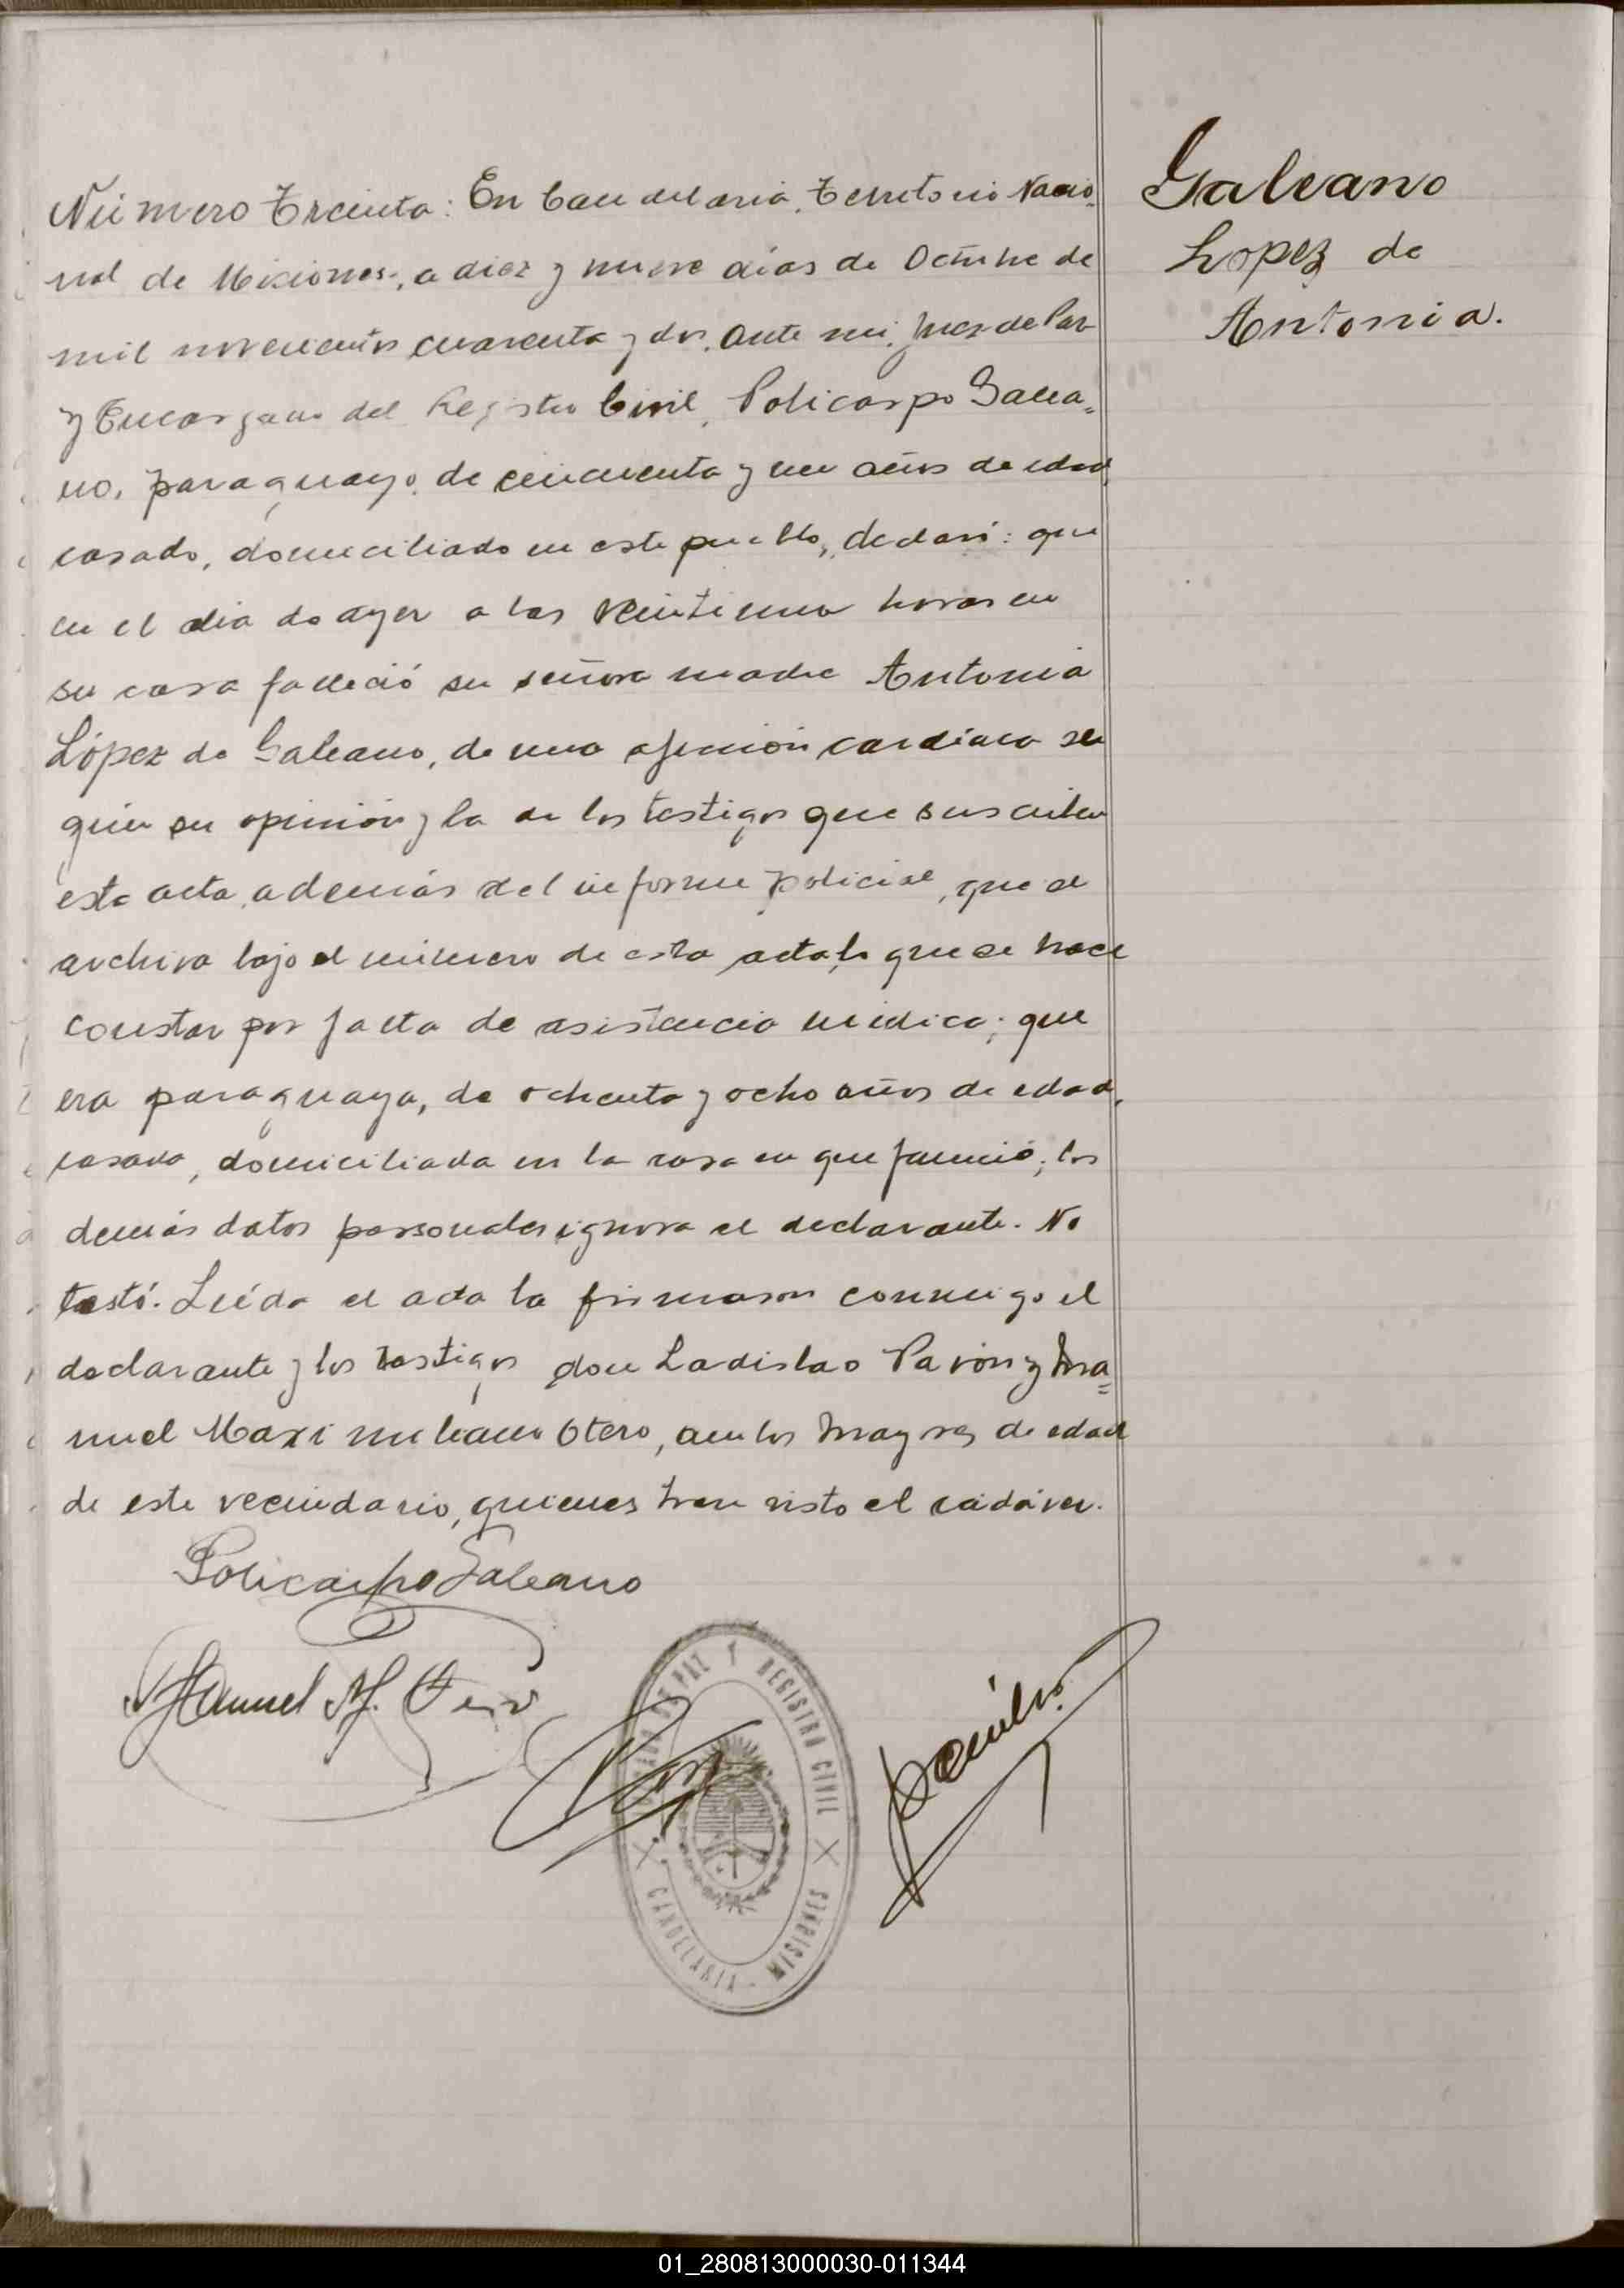 Galeano
Lopez de
Antonia.
Número Treinta: En Candelaria, Territorio Nacio-
nal de Misiones, a diez y nueve días de Octubre de
mil novecientos cuarenta y dos, ante mi, Juez de Paz
y Encargado del Registro Civil, Policarpo Galea=
no, paraguayo, de cincuenta y un años de edad,
casado, domiciliado en este pueblo, declaró: que
en el día de ayer a las veintiuna horas en
su casa falleció su señora madre Antonia
López de Galeano, de una afección cardíaca se
gún su opinión y la de los testigos que suscriben
esta acta, además del informe policial, que se
archiva bajo el número de esta acta, lo que se hace
constar por falta de asistencia médica; que
era paraguaya, de ochenta y ocho años de edad,
casada, domiciliada en la casa en que falleció; los
demás datos personales ignora el declarante. No
testó. Leída el acta la firmaron conmigo el
declarante y los testigos don Ladislao Pavón y Ma=
nuel Maximiliano Otero, ambos mayores de edad
de este vecindario, quienes han visto el cadáver.
Policarpo Galeano
Manuel M. Otero
JUZGADO DE PAZ Y REGISTRO CIVIL
CANDELARIA - MISIONES
01_280813000030-011344